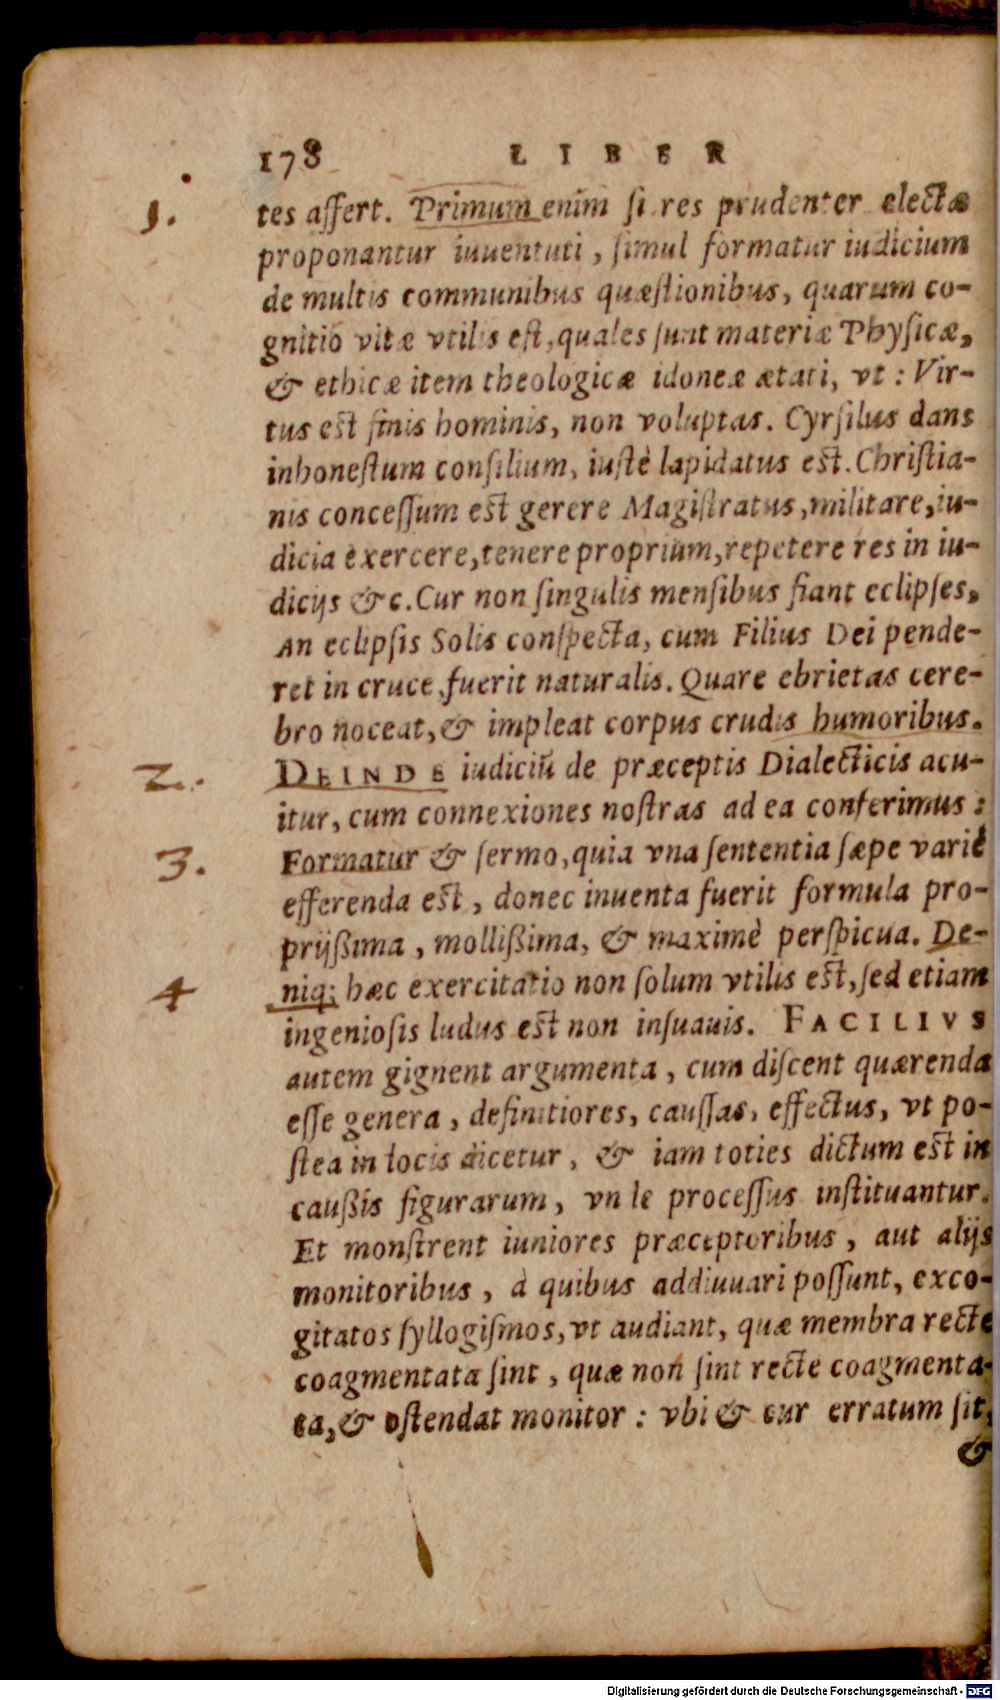 178 LIBER
1. tes assert. Primum enim si res prudenter electæ
proponantur iuuentuti, simul formatur iudicium
de multis communibus quæstionibus, quarum co-
gnitio vitæ vtilis est, quales sunt materiæ Physicæ,
& ethicæ item theologicæ idoneæ ætati, vt: Vir-
tus est finis hominis, non voluptas. Cyrsilus dans
inhonestum consilium, iustè lapidatus est. Christia-
nis concessum est gerere Magistratus, militare, iu-
dicia exercere, tenere proprium, repetere res in iu-
dicijs &c. Cur non singulis mensibus fiant eclipses,
An eclipsis Solis conspecta, cum Filius Dei pende-
ret in cruce, fuerit naturalis. Quare ebrietas cere-
bro noceat, & impleat corpus crudis humoribus.
2. DEINDE iudiciũ de præceptis Dialecticis acu-
itur, cum connexiones nostras ad ea conferimus:
3. Formatur & sermo, quia vna sententia sæpe variè
efferenda est, donec inuenta fuerit formula pro-
prijßima, mollißima, & maximè perspicua. De-
4 niq; hæc exercitatio non solum vtilis est, sed etiam
ingeniosis ludus est non insuauis. FACILIVS
autem gignent argumenta, cum discent quærenda
esse genera, definitiores, caussas, effectus, vt po-
stea in locis dicetur, & iam toties dictum est in
caußis figurarum, vnde processus instituantur.
Et monstrent iuniores præceptoribus, aut alijs
monitoribus, à quibus addiuuari possunt, exco-
gitatos syllogismos, vt audiant, quæ membra recte
coagmentata sint, quæ non sint recte coagmenta-
ta, & ostendat monitor: vbi & cur erratum sit,
&
Digitalisierung gefördert durch die Deutsche Forschungsgemeinschaft - DFG